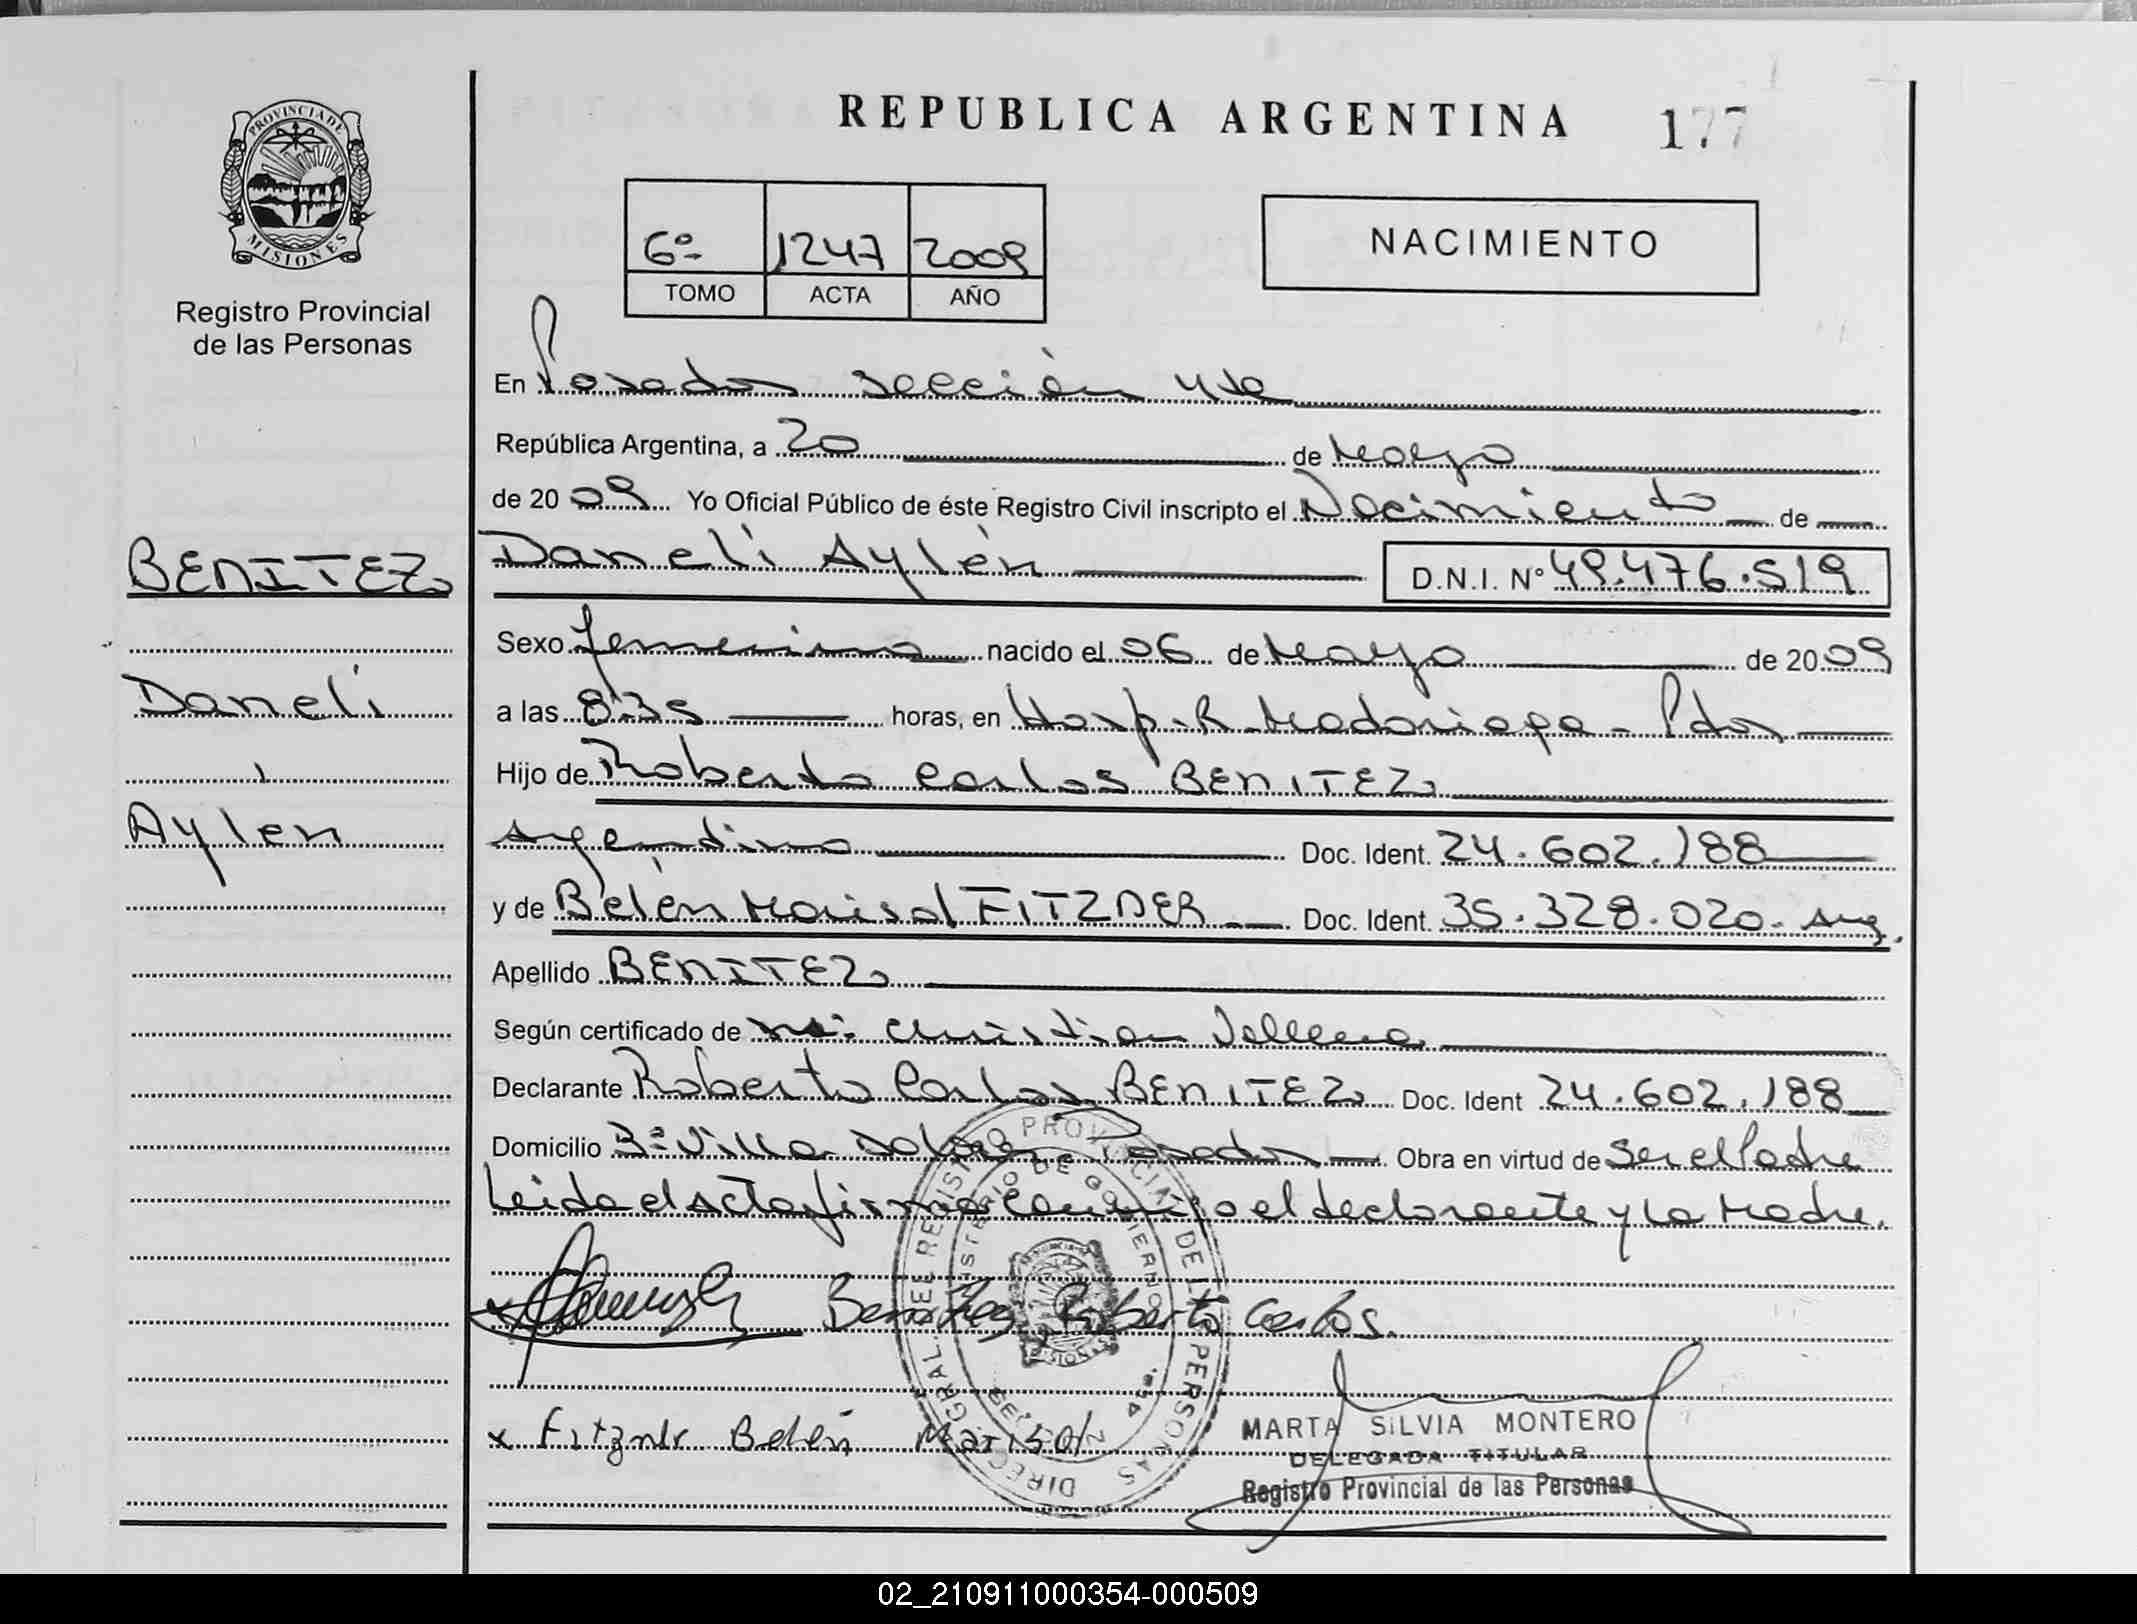 REPUBLICA ARGENTINA 177
PROVINCIA DE
MISIONES
Registro Provincial
de las Personas
6º 1247 2009
TOMO ACTA AÑO
NACIMIENTO
En Posadas sección 4ta
República Argentina, a 20 de Mayo
de 2009 Yo Oficial Público de éste Registro Civil inscripto el Nacimiento de
BENITEZ
Daneli
Aylén
Daneli Aylén D.N.I. Nº 49.476.519
Sexo femenino nacido el 06 de Mayo de 2009
a las 8:35 horas, en Hosp. R. Madariaga - Pdas
Hijo de Roberto Carlos BENITEZ
Argentino Doc. Ident. 24.602.188
y de Belén Marisol FITZNER Doc. Ident. 35.328.020. Arg.
Apellido BENITEZ
Según certificado de Christian
Declarante Roberto Carlos BENITEZ Doc. Ident 24.602.188
Domicilio Bº Villa Posadas Obra en virtud de Ser el Padre
Leida el Acta firma conmigo el declarante y la Madre.
Benitez Roberto Carlos.
x Fitznr Belén Marisol
DIRECC. GRAL. DEL REGISTRO PROVINCIAL DE LAS PERSONAS
MINISTERIO DE GOBIERNO
MARTA SILVIA MONTERO
DELEGADA TITULAR
Registro Provincial de las Personas
02_210911000354-000509